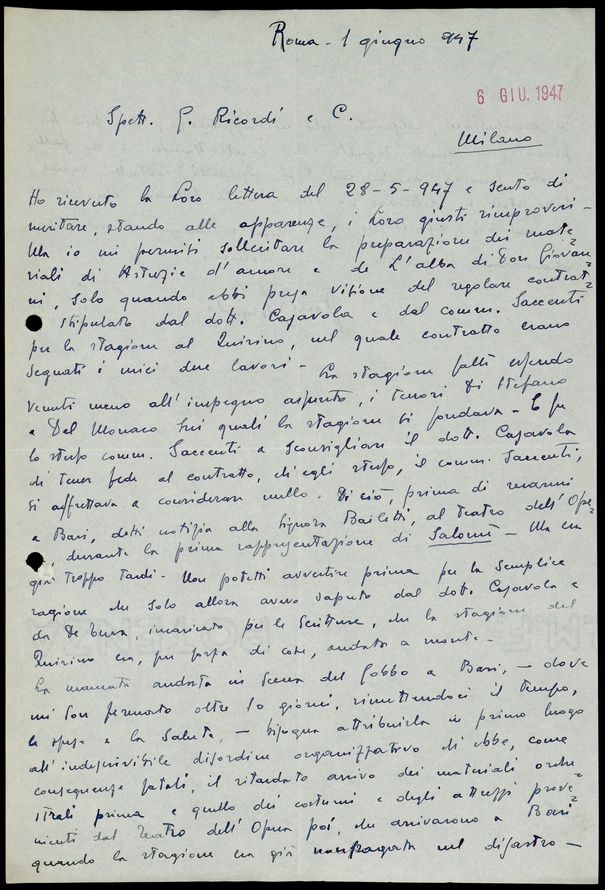 Roma - 1 giugno 947
6 GIU. 1947
Spett. G. Ricordi e C.
Milano
Ho ricevuto la Loro lettera del 28-5-947 e sento di
meritare, stando alle apparenze, i Loro giusti rimproveri -
Ma io mi permisi sollecitare la preparazione dei mate=
riali di Astuzie d'amore e de L'alba di Don Giovan=
ni, solo quando ebbi presa visione del regolare contrat=
to stipulato dal dott. Casavola e dal comm. Saccenti
per la stagione al Quirino, nel quale contratto erano
segnati i miei due lavori - La stagione fallì essendo
venuti meno all'impegno assunto, i tenori Di Stefano
e Del Monaco sui quali la stagione si fondava - E fu
lo stesso comm. Saccenti a sconsigliare il dott. Casavola
di tener fede al contratto, ch'egli stesso, il comm. Saccenti,
si affrettava a considerare nullo. Di ciò, prima di recarmi
a Bari, detti notizia alla signora Bailetti, al Teatro dell'Ope=
ra durante la prima rappresentazione di Salomè - Ma era
già troppo tardi - Non potetti avvertire prima per la semplice
ragione che solo allora avevo saputo dal dott. Casavola e
da De Luca, incaricato per le scritture, che la stagione del
Quirino era, per forza di cose, andata a monte -
La mancata andata in scena del Gobbo a Bari, - dove
mi son fermato oltre 10 giorni, rimettendoci il tempo,
le spese e la salute, - bisogna attribuirla in primo luogo
all'indescrivibile disordine organizzativo ch'ebbe, come
conseguenze fatali, il ritardato arrivo dei materiali orche
strali prima e quello dei costumi e degli attrezzi prove=
nienti dal Teatro dell'Opera poi, che arrivarono a Bari
quando la stagione era già naufragata nel disastro -